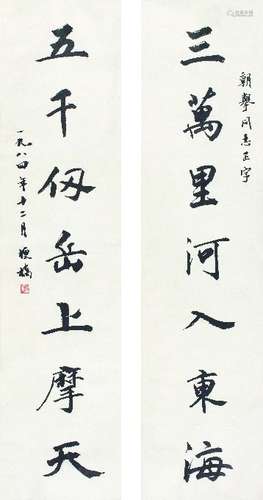 朝舉同志正字
三萬里河入東海
五千仞岳上摩天
一九八四年十二月